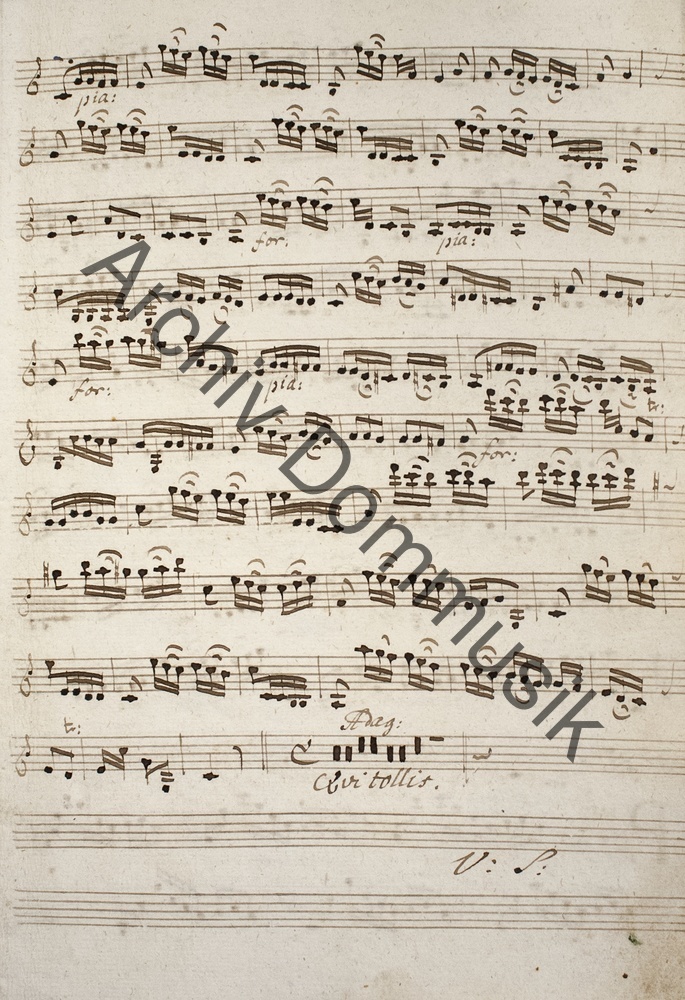 pia:
for: pia:
for: pia: tr:
for:
tr: Adag:
Qui tollis.
V: S:
Archiv Dommusik